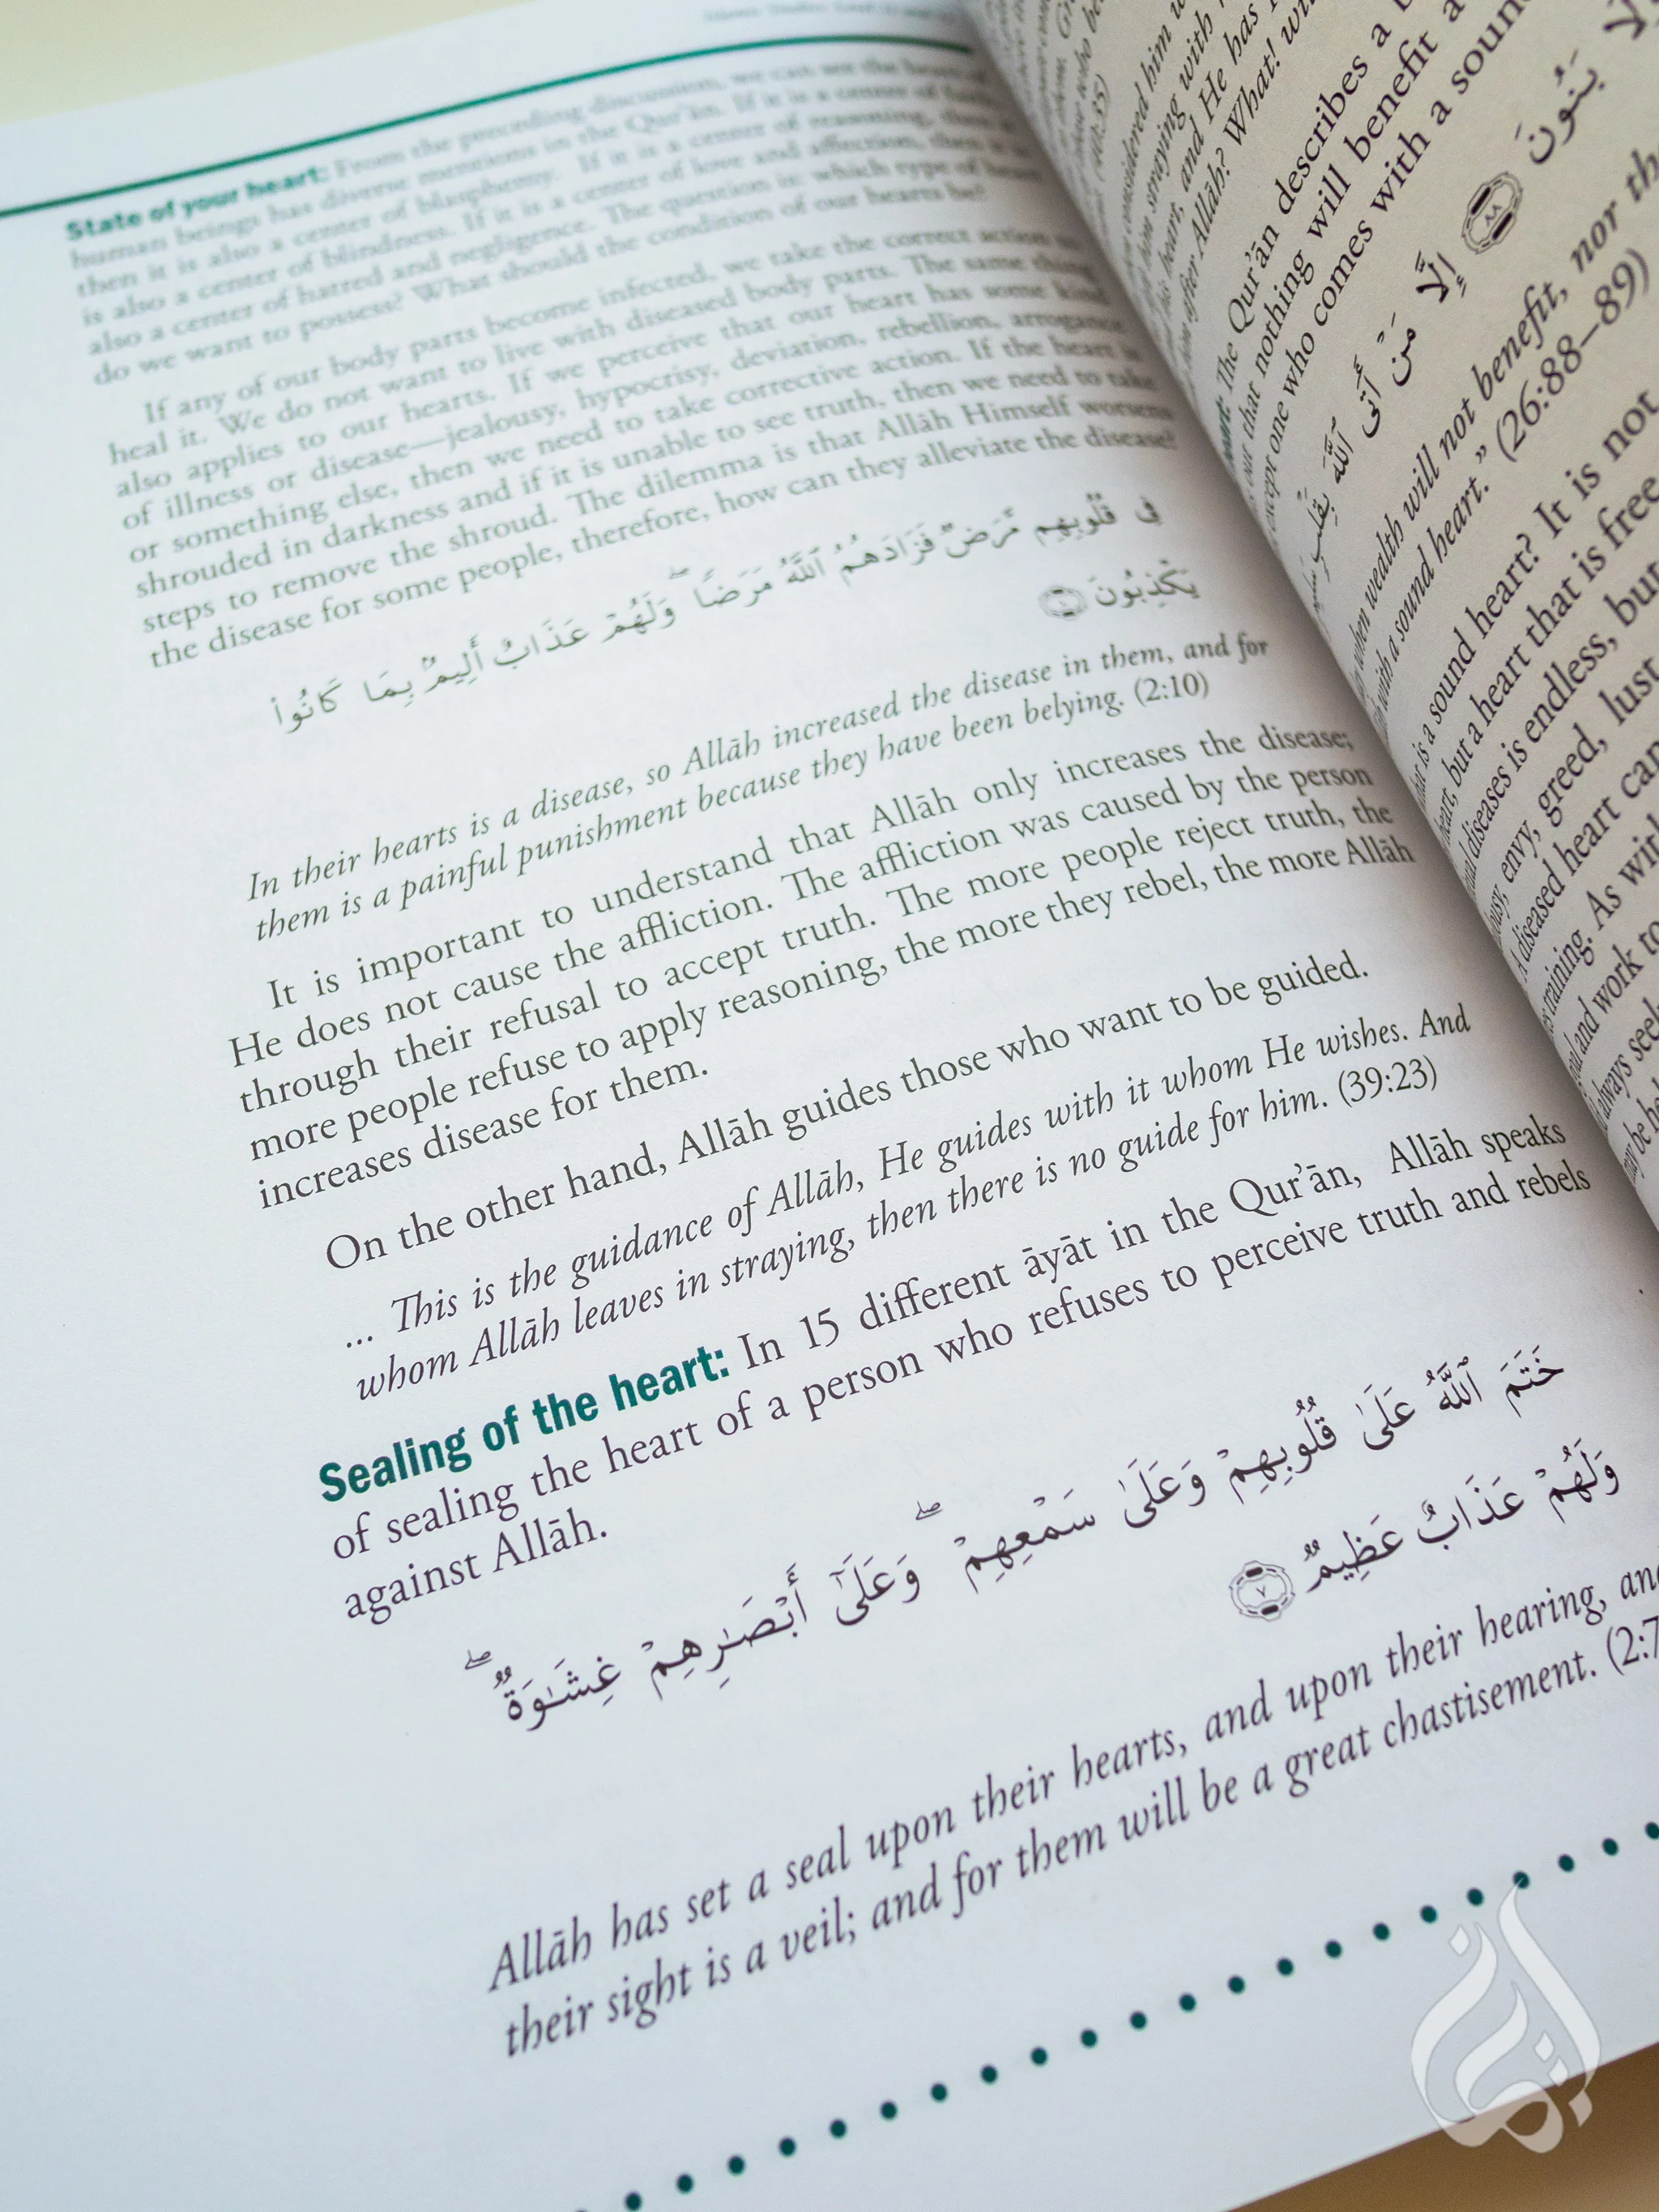 State of your heart: From the preceding discussion, we can see the heart of
human beings has diverse mentions in the Qur'ān. If it is a center of faith,
then it is also a center of blasphemy. If it is a center of reasoning, then it
is also a center of blindness. If it is a center of love and affection, then it is
also a center of hatred and negligence. The question is: which type of heart
do we want to possess? What should the condition of our hearts be?
If any of our body parts become infected, we take the correct action to
heal it. We do not want to live with diseased body parts. The same thing
also applies to our hearts. If we perceive that our heart has some kind
of illness or disease—jealousy, hypocrisy, deviation, rebellion, arrogance
or something else, then we need to take corrective action. If the heart is
shrouded in darkness and if it is unable to see truth, then we need to take
steps to remove the shroud. The dilemma is that Allāh Himself worsens
the disease for some people, therefore, how can they alleviate the disease?
فِي قُلُوبِهِم مَّرَضٌ فَزَادَهُمُ ٱللَّهُ مَرَضًا ۖ وَلَهُمْ عَذَابٌ أَلِيمٌۢ بِمَا كَانُوا۟
يَكْذِبُونَ ١٠
In their hearts is a disease, so Allāh increased the disease in them, and for
them is a painful punishment because they have been belying. (2:10)
It is important to understand that Allāh only increases the disease;
He does not cause the affliction. The affliction was caused by the person
through their refusal to accept truth. The more people reject truth, the
more people refuse to apply reasoning, the more they rebel, the more Allāh
increases disease for them.
On the other hand, Allāh guides those who want to be guided.
... This is the guidance of Allāh, He guides with it whom He wishes. And
whom Allāh leaves in straying, then there is no guide for him. (39:23)
Sealing of the heart: In 15 different āyāt in the Qur'ān, Allāh speaks
of sealing the heart of a person who refuses to perceive truth and rebels
against Allāh.
خَتَمَ ٱللَّهُ عَلَىٰ قُلُوبِهِمْ وَعَلَىٰ سَمْعِهِمْ ۖ وَعَلَىٰٓ أَبْصَـٰرِهِمْ غِشَـٰوَةٌ ۖ
وَلَهُمْ عَذَابٌ عَظِيمٌ ٧
Allāh has set a seal upon their hearts, and upon their hearing, and
their sight is a veil; and for them will be a great chastisement. (2:7
considered him
straying with
his heart, and He has
after Allāh? What!
The Qur'ān describes a
out that nothing will benefit a
except one who comes with a sound
بَنُونَ ٨٨ إِلَّا مَنْ أَتَى ٱللَّهَ بِقَلْبٍ
when wealth will not benefit, nor
with a sound heart." (26:88–89)
is a sound heart? It is not
heart, but a heart that is free
diseases is endless, but
envy, greed, lust
diseased heart can
training. As
and work to
always seek
may be